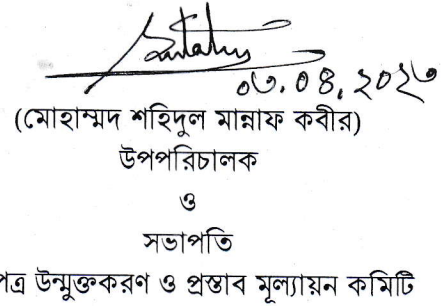 ০৬.০৪.২০২৬
(মোহাম্মদ শহিদুল মান্নাফ কবীর)
উপপরিচালক
ও
সভাপতি
উন্মুক্তকরণ ও প্রস্তাব মূল্যায়ন কমিটি